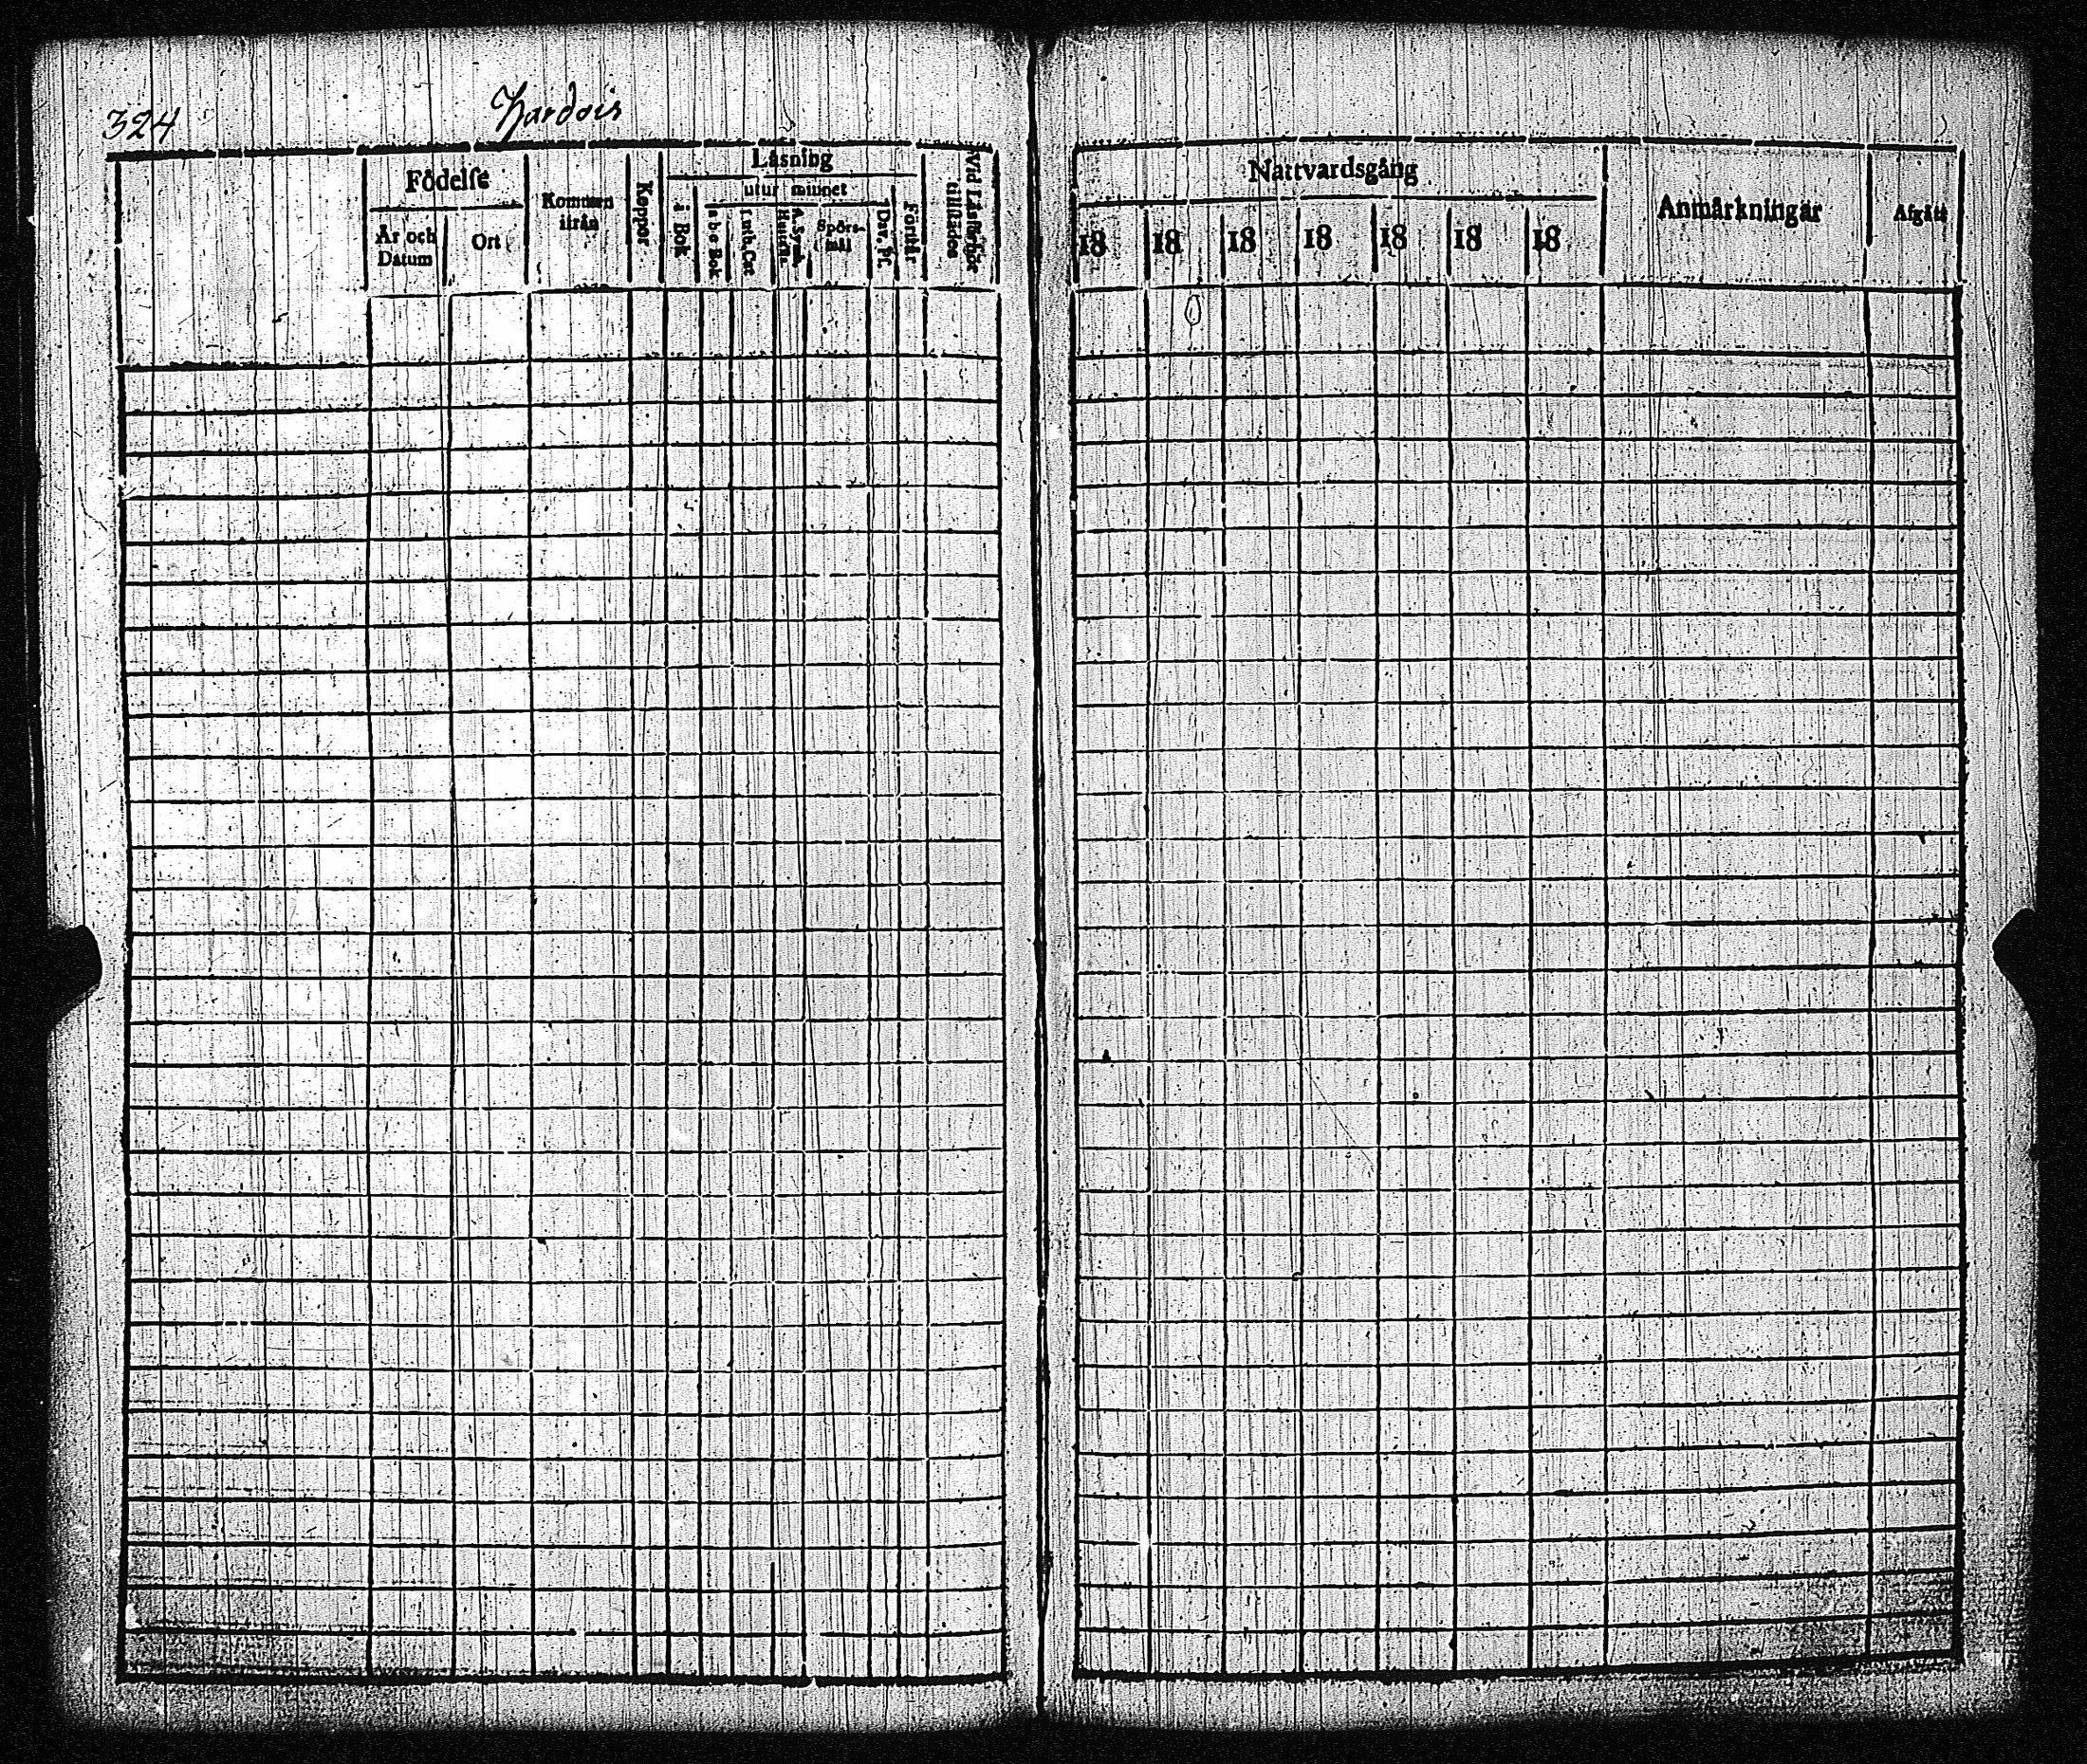 324
Födelse
År och Datum
Ort
Kommen ifrån
Koppor
Läsning
utur minnet
i Bok
a b c Bok
Luth. Cat
A. Symb.
Spörsmål
Dav. Ps.
Förstår
Vid Läsförhör tillstädes
Nattvardsgång
18 18 18 18 18 18 18
Anmärkningar
Afgått